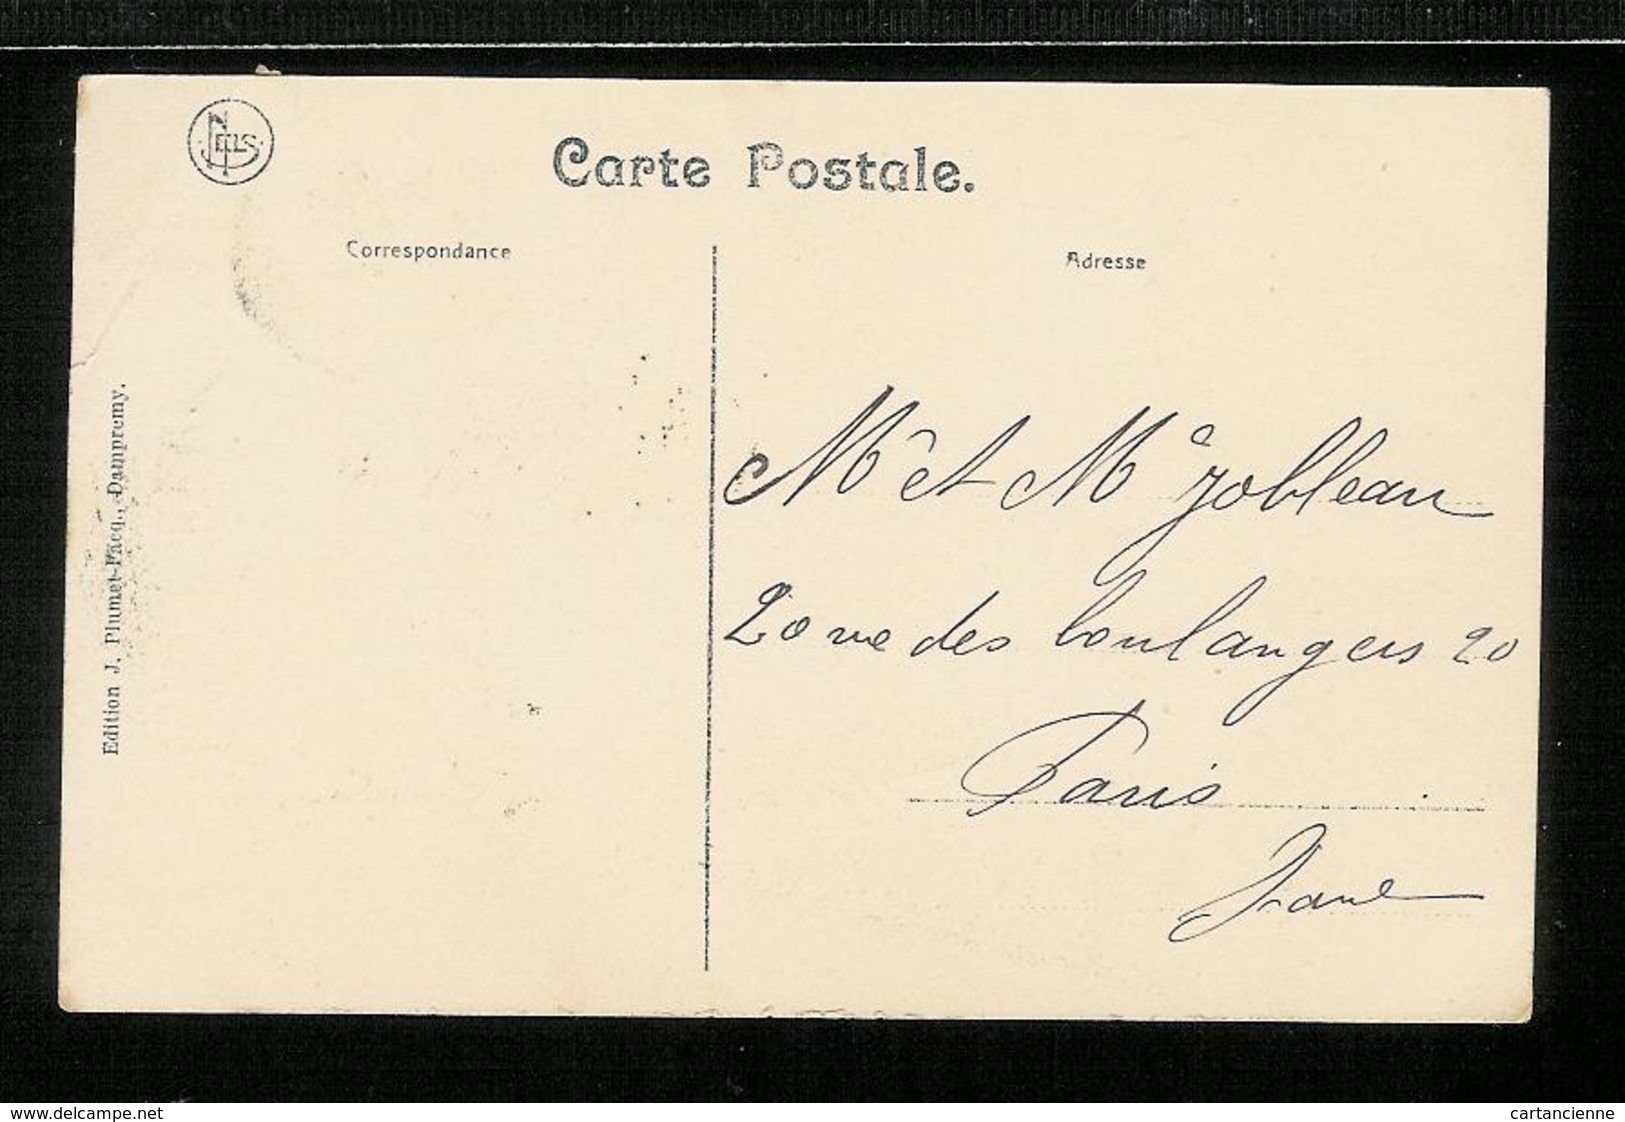 NELS
Carte Postale.
Correspondance
Adresse
Edition J. Plumet-Facq., Dampremy.
Mr et Me Jobleau
20 rue des boulangers 20
Paris
France
www.delcampe.net
cartancienne